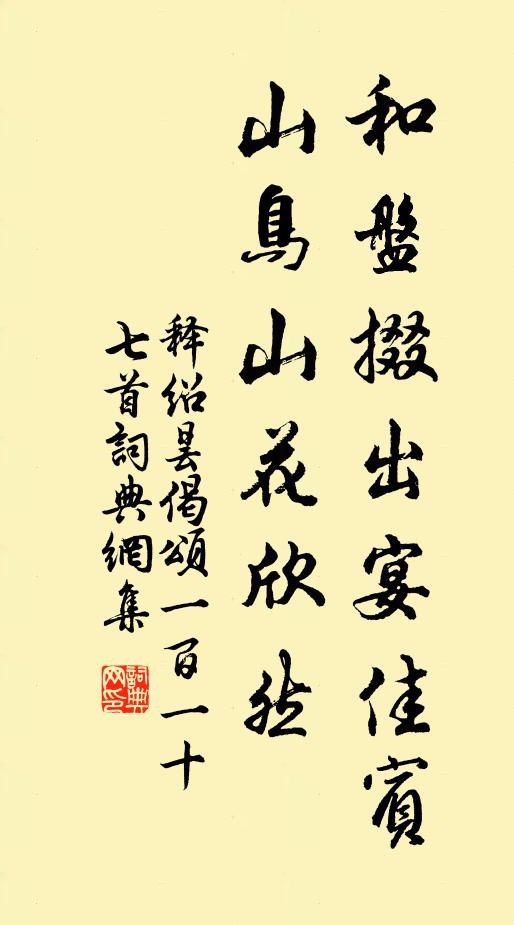 和盤掇出宴佳賓
山鳥山花欣然
释绍昙偈頌一百一十
七首詞典網集
詞典
网印